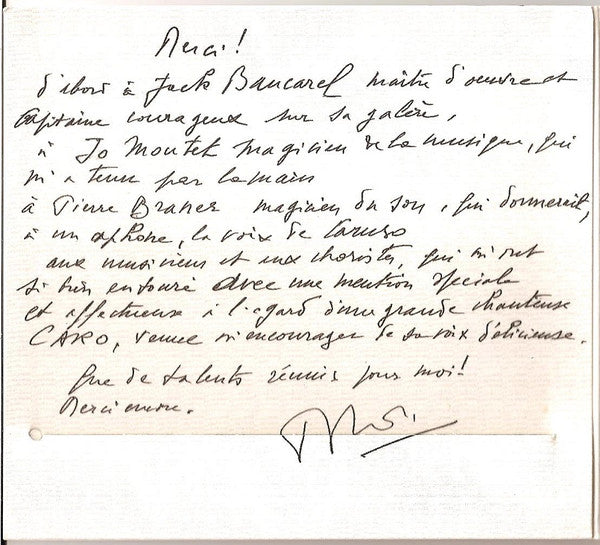 Merci !
d'abord à Jack Bancarel maître d'œuvre et
Capitaine courageux sur sa galère,
à Jo Moutet magicien de la musique, qui
m'a tenu par la main
à Pierre Braner magicien du son, qui donnerait,
à un aphone, la voix de Caruso
aux musiciens et aux choristes, qui m'ont
si bien entouré avec une mention spéciale
et affectueuse à l'égard d'une grande chanteuse
CARO, venue m'encourager de sa voix délicieuse.
Que de talents réunis pour moi !
Merci encore.